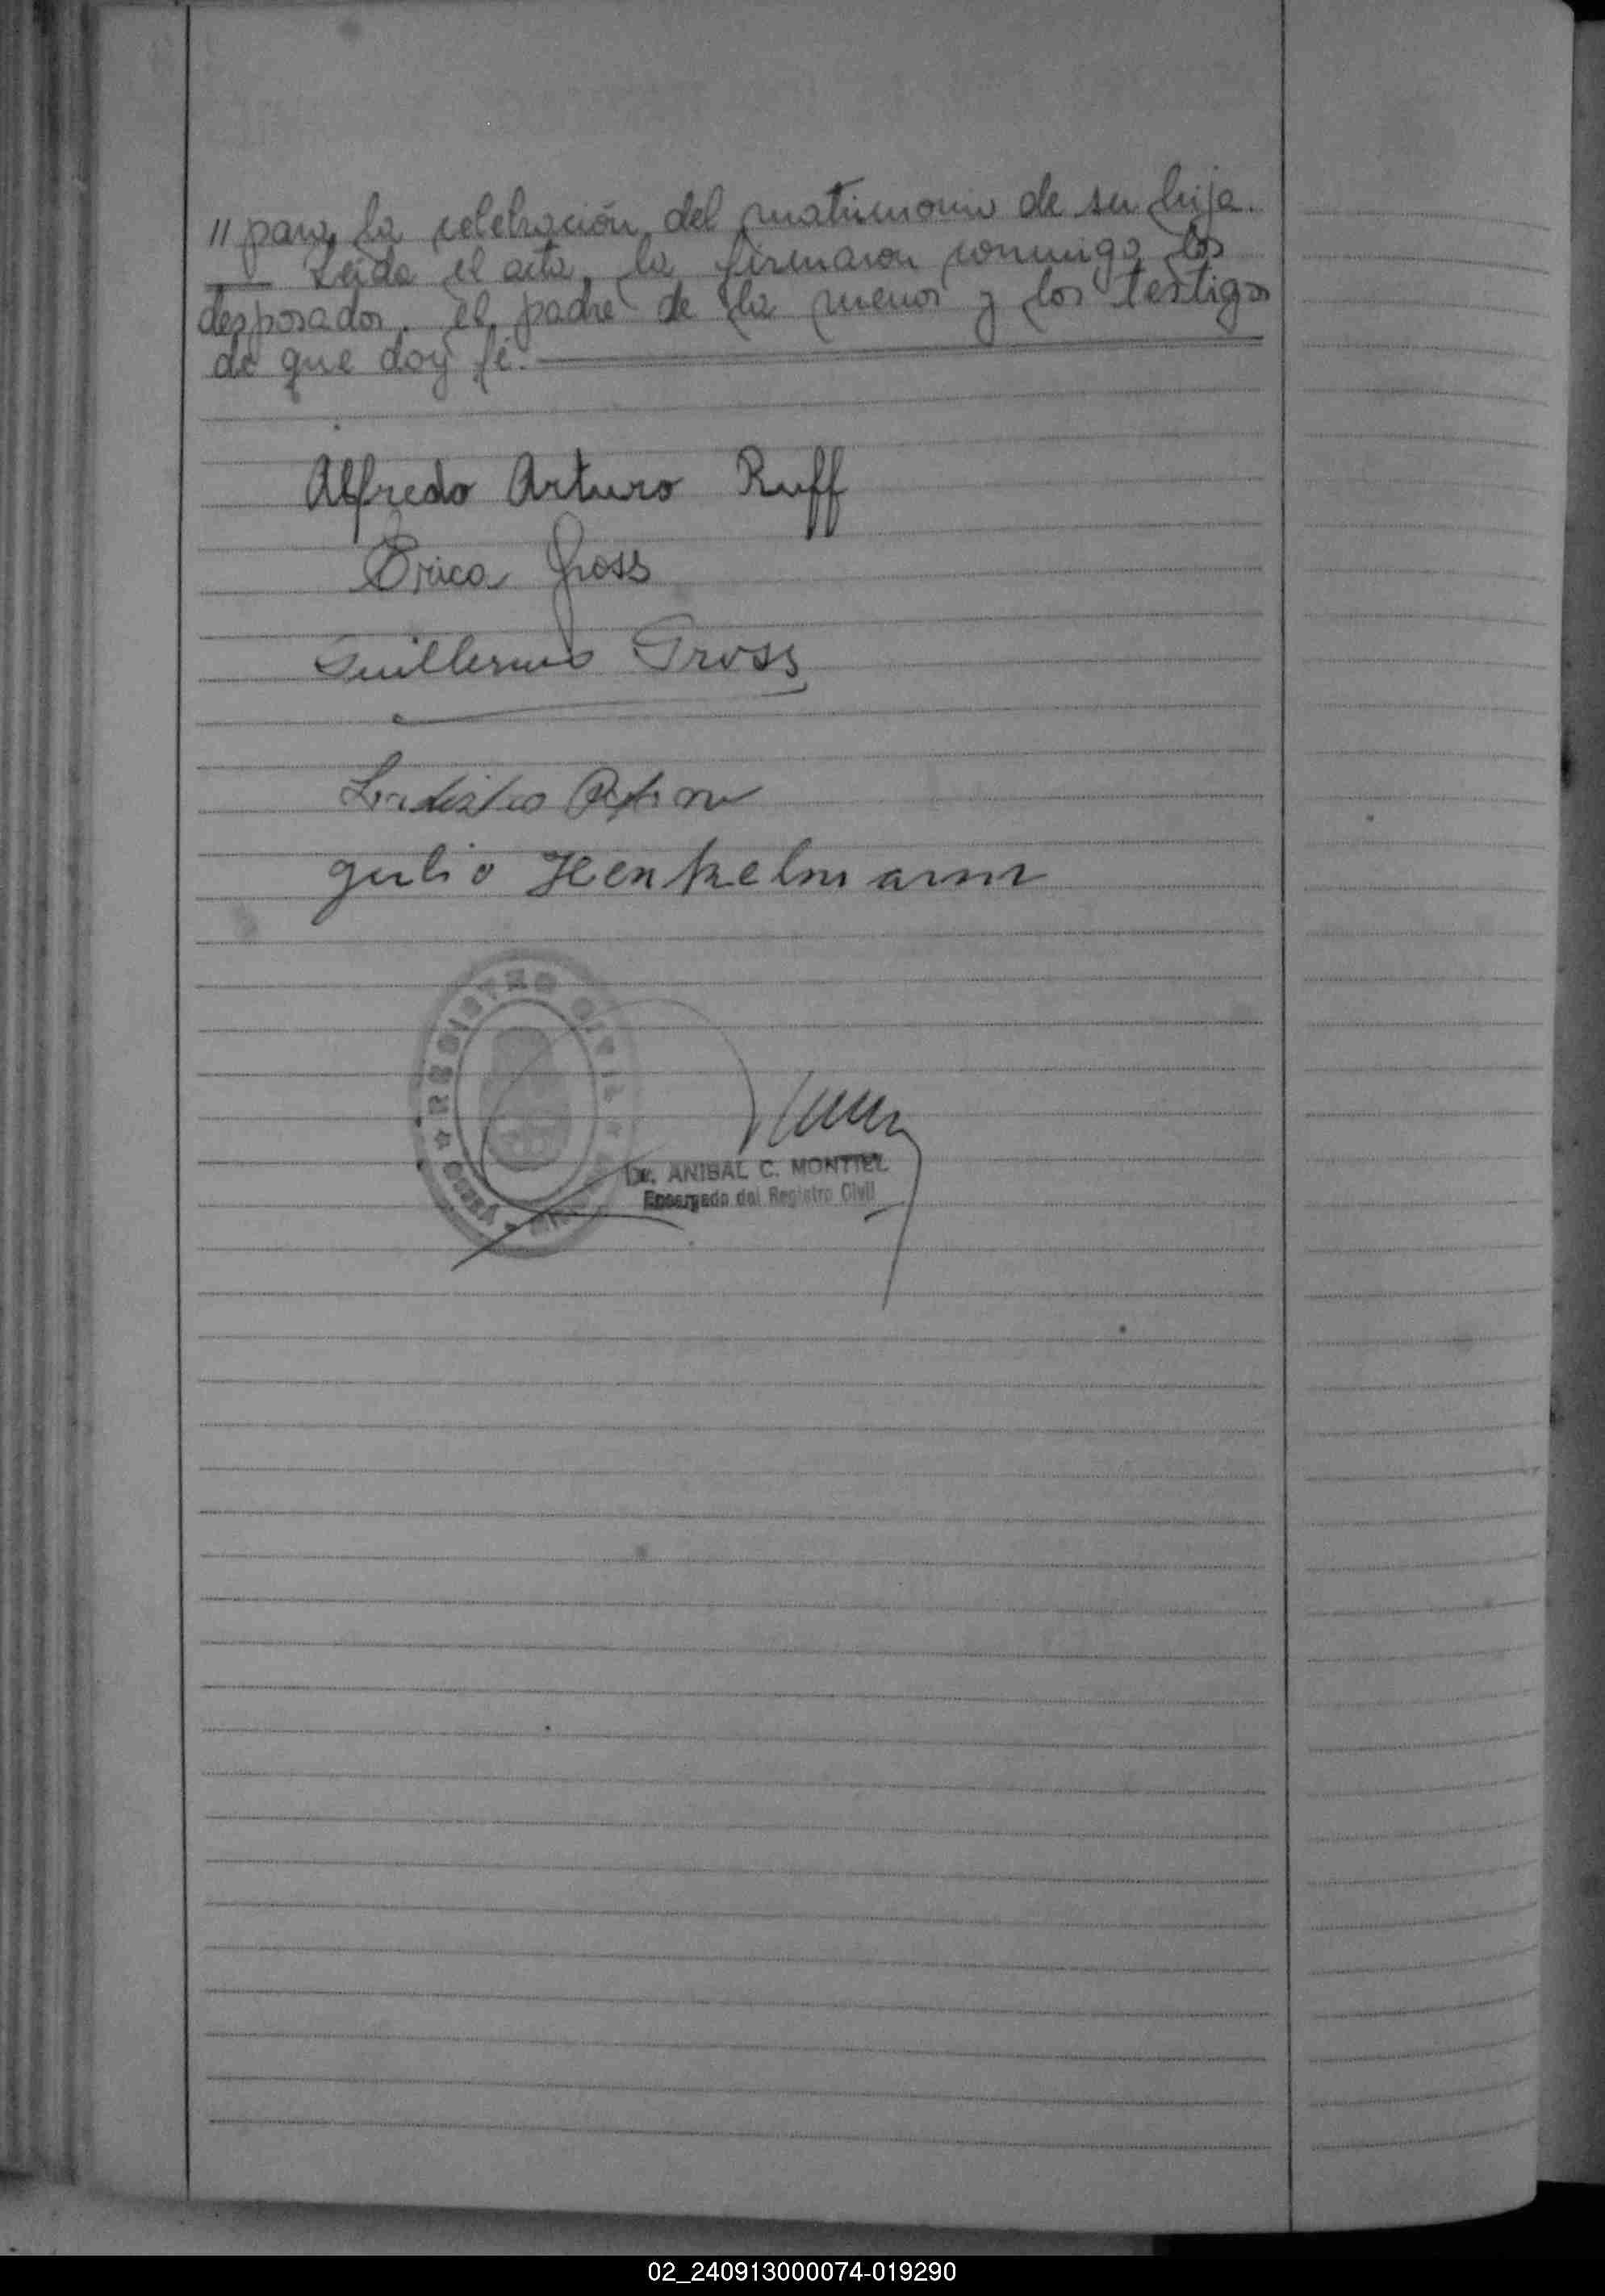 // para la celebración del matrimonio de su hija.
Leida el acta, la firmaron conmigo los
desposados, el padre de la menor y los testigos
de que doy fé.
Alfredo Arturo Ruff
Erica Gross
Guillermo Gross
Ladislao
Julio Henkelmann
REGISTRO CIVIL
Dr. ANIBAL C. MONTIEL
Encargado del Registro Civil
02_240913000074-019290